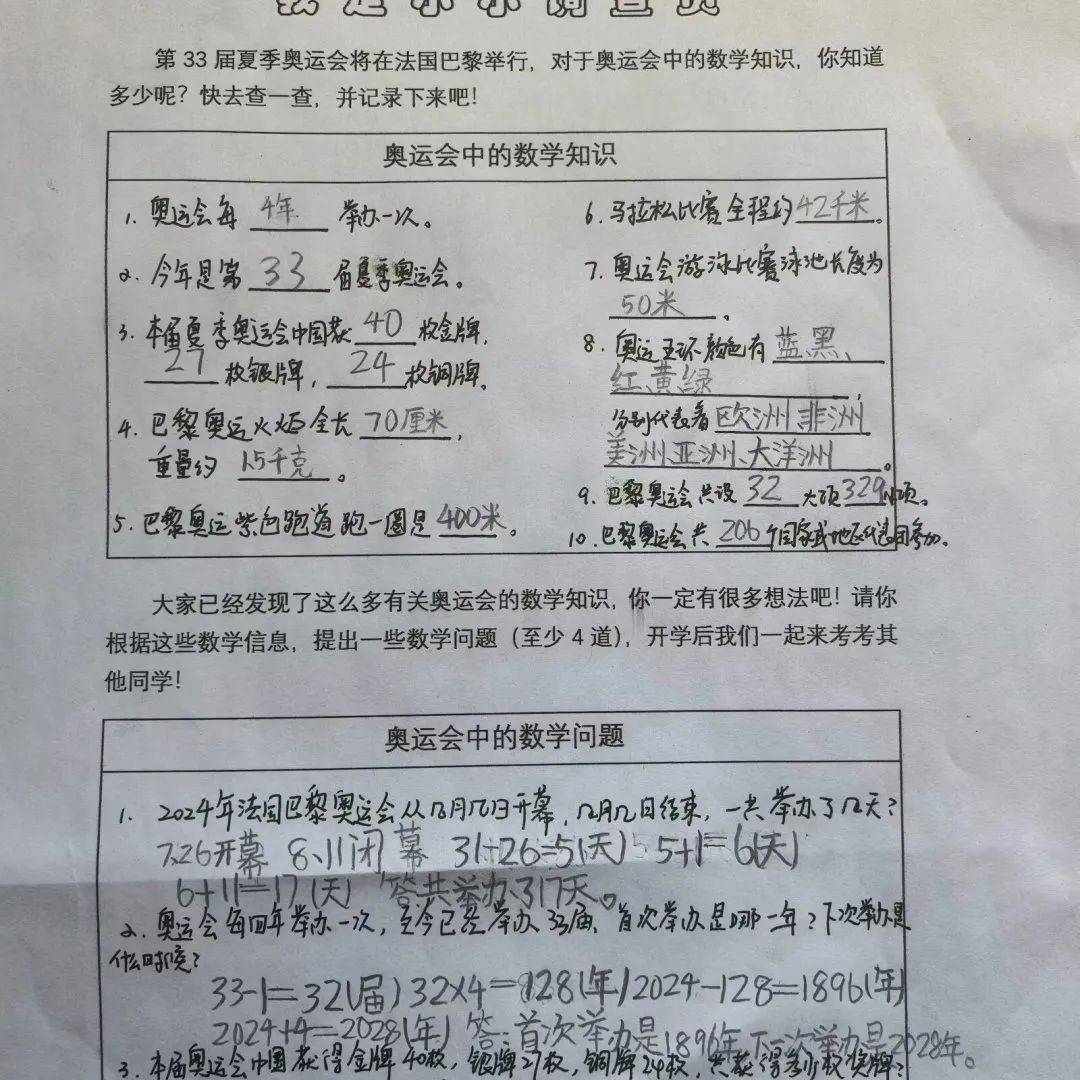 我是小小调查员
第 33 届夏季奥运会将在法国巴黎举行，对于奥运会中的数学知识，你知道
多少呢？快去查一查，并记录下来吧！
奥运会中的数学知识
1. 奥运会每 4年 举办一次。
2. 今年是第 33 届夏季奥运会。
3. 本届夏季奥运会中国获 40 枚金牌，
27 枚银牌，24 枚铜牌。
4. 巴黎奥运火炬全长 70厘米，
重量约 1.5千克。
5. 巴黎奥运紫色跑道跑一圈是 400米。
6. 马拉松比赛全程约 42千米。
7. 奥运会游泳比赛泳池长度为
50米。
8. 奥运五环颜色有 蓝、黑、
红、黄、绿，
分别代表着 欧洲、非洲
美洲、亚洲、大洋洲。
9. 巴黎奥运会共设 32 大项 329 小项。
10. 巴黎奥运会共 206 个国家或地区代表团参加。
大家已经发现了这么多有关奥运会的数学知识，你一定有很多想法吧！请你
根据这些数学信息，提出一些数学问题（至少 4 道），开学后我们一起来考考其
他同学！
奥运会中的数学问题
1. 2024年法国巴黎奥运会从几月几日开幕，几月几日结束，一共举办了几天？
7.26开幕 8.11闭幕 31-26=5(天) 5+1=6(天)
6+11=17(天) 答:共举办了17天。
2. 奥运会每四年举办一次，至今已经举办33届，首次举办是哪一年？下次举办是
什么时候？
33-1=32(届) 32×4=128(年) 2024-128=1896(年)
2024+4=2028(年) 答:首次举办是1896年,下一次举办是2028年。
3. 本届奥运会中国获得金牌40枚，银牌27枚，铜牌24枚，共获得多少枚奖牌？